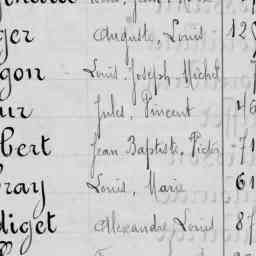 ger Auguste, Louis 12
gon Louis, Joseph Michel
ur Jules, Vincent 46
bert Jean Baptiste, Victor 71
ray Louis, Marie 61
diget Alexandre Louis 87